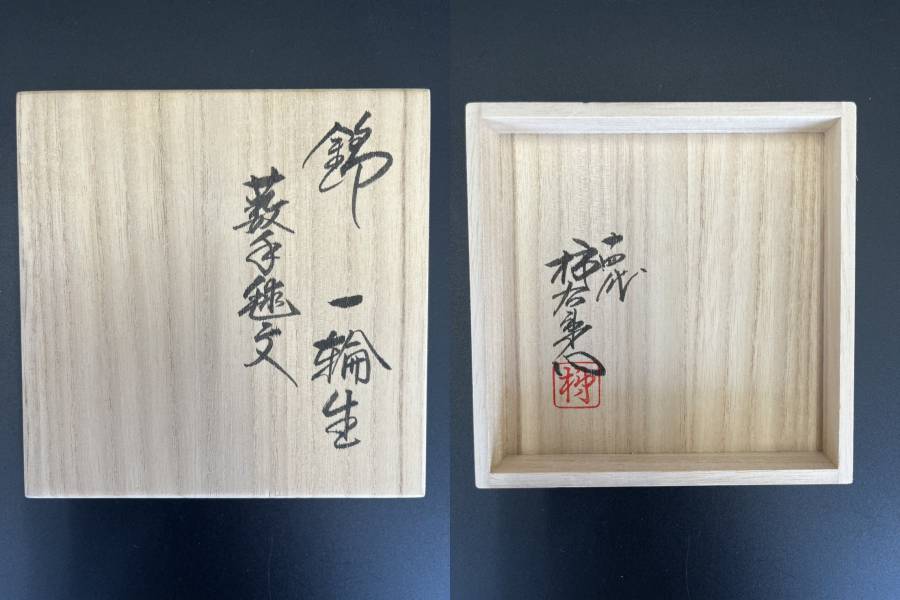 錦 一輪生
薮手毬文
十四代
柿右衛門
柿